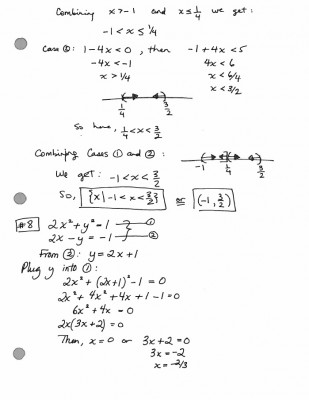 Combining x > -1 and x ≤ 1/4 we get:
-1 < x ≤ 1/4
Case ②: 1-4x < 0, then -1+4x < 5
-4x < -1 4x < 6
x > 1/4 x < 6/4
x < 3/2
1/4 3/2
So here, 1/4 < x < 3/2
Combining Cases ① and ②:
-1 1/4 3/2
We get: -1 < x < 3/2
So, {x | -1 < x < 3/2} or (-1, 3/2)
#8 2x² + y² = 1 ①
2x - y = -1 ②
From ②: y = 2x+1
Plug y into ①:
2x² + (2x+1)² - 1 = 0
2x² + 4x² + 4x + 1 - 1 = 0
6x² + 4x = 0
2x(3x+2) = 0
Then, x = 0 or 3x+2 = 0
3x = -2
x = -2/3